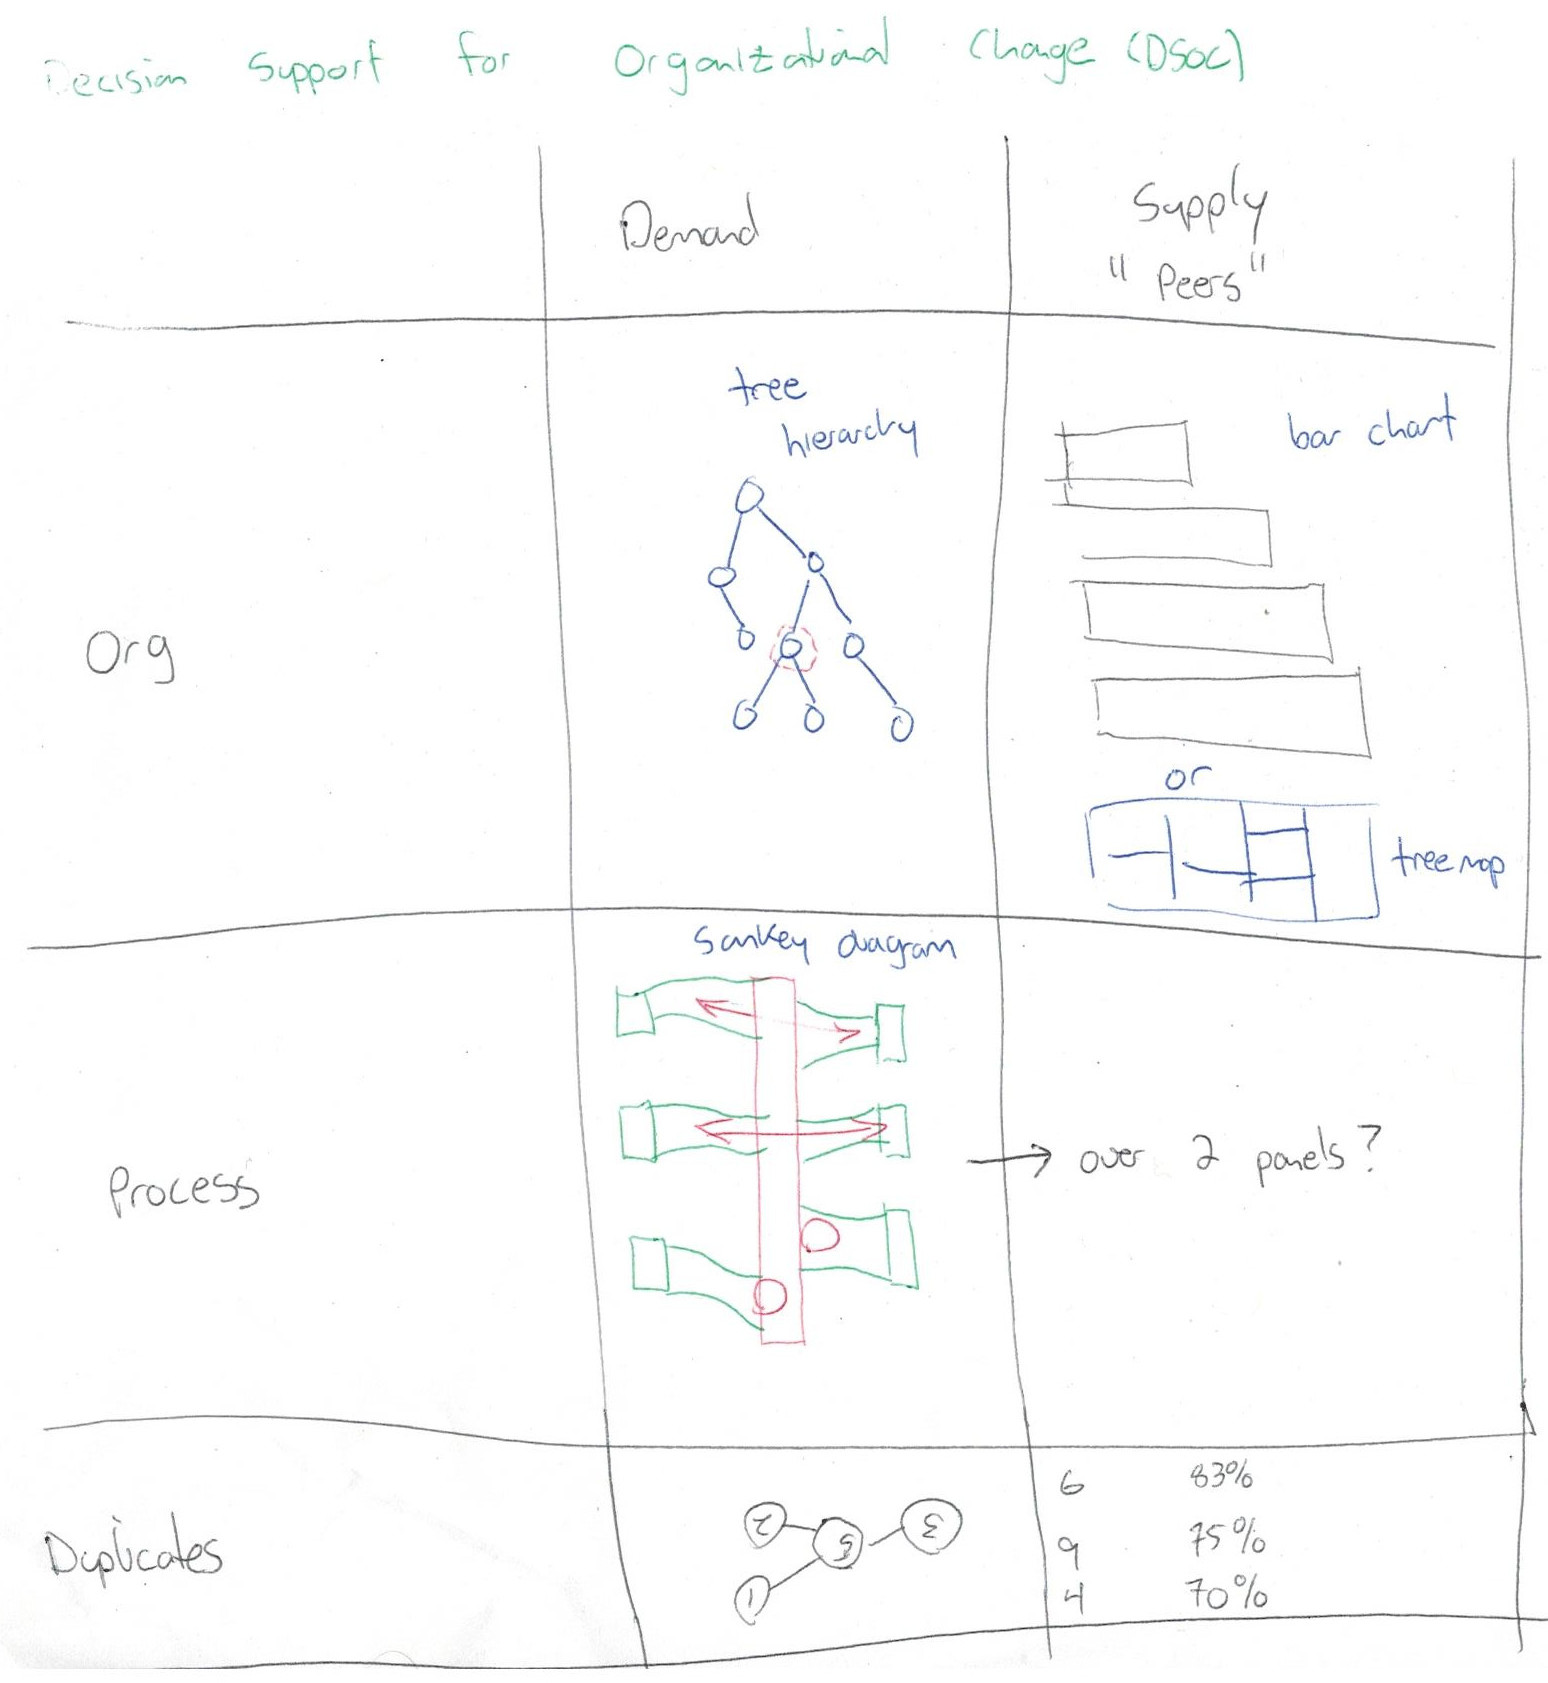 Decision Support for Organizational Change (DSOC)
Demand
Supply
"Peers"
tree
hierarchy
bar chart
Org
or
treemap
Sankey diagram
Process
→ over 2 panels?
Duplicates
2
3
1
6 83%
9 75%
4 70%